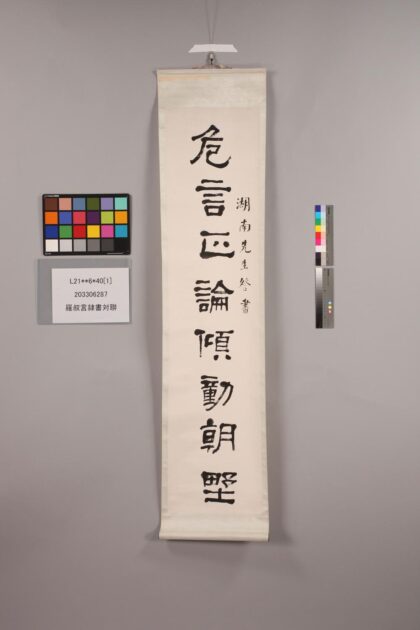 危言正論傾動朝野
湖南先生 書
L21**6*40[1]
203306287
羅叔言隷書対聯